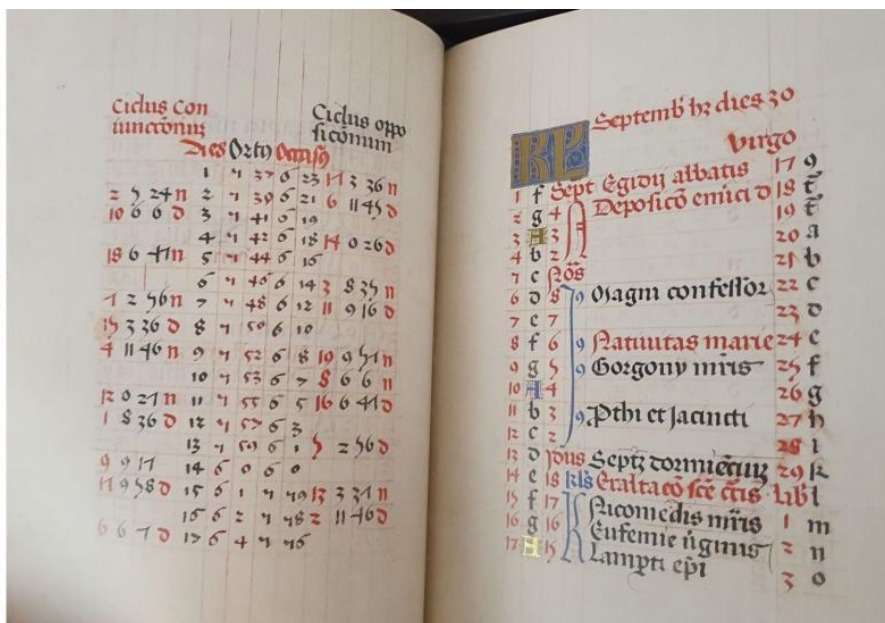 Ciclus Con
iunccionū
Dies Ortꝰ Occasꝰ
Ciclus oppo
sicōnum
1 5 37 6 23 17 3 36 n
2 5 24 n 2 5 39 6 21 6 11 45 d
10 6 6 d 3 5 41 6 19
4 5 42 6 18 14 0 26 d
18 6 47 n 5 5 44 6 16
6 5 46 6 14 3 8 35 n
7 2 56 n 7 5 48 6 12 11 9 16 d
15 3 36 d 8 5 50 6 10
4 11 46 n 9 5 52 6 8 19 9 57 n
10 5 53 6 7 8 6 6 n
12 0 27 n 11 5 55 6 5 16 6 47 d
1 8 36 d 12 5 57 6 3
13 5 59 6 1 5 2 56 d
9 9 17 14 6 0 6 0
17 9 58 d 15 6 1 5 59 13 3 37 n
16 6 2 5 58 2 11 46 d
6 6 7 d 17 6 4 5 56
KL Septemb hꝫ dies 30
Virgo
1 f Sept Egidij abbatis 17 9
2 g 4 N Deposicō 18
3 A 3 19
4 b 2 20 a
5 c Nōs 21 b
6 d 8 Magni confessor 22 c
7 e 7 23 d
8 f 6 Natiuitas marie 24 e
9 g 5 Gorgony mris 25 f
10 A 4 26 g
11 b 3 Pthi et Jacincti 27 h
12 c 2 28 i
13 d Idus Septꝫ dormiēciuꝫ 29 k
14 e 18 kls Exaltacō scē cͥcis Lib l
15 f 17 K Nicomedis mris 1 m
16 g 16 Eufemie ūginis 2 n
17 A 15 Lamprti epi 3 o